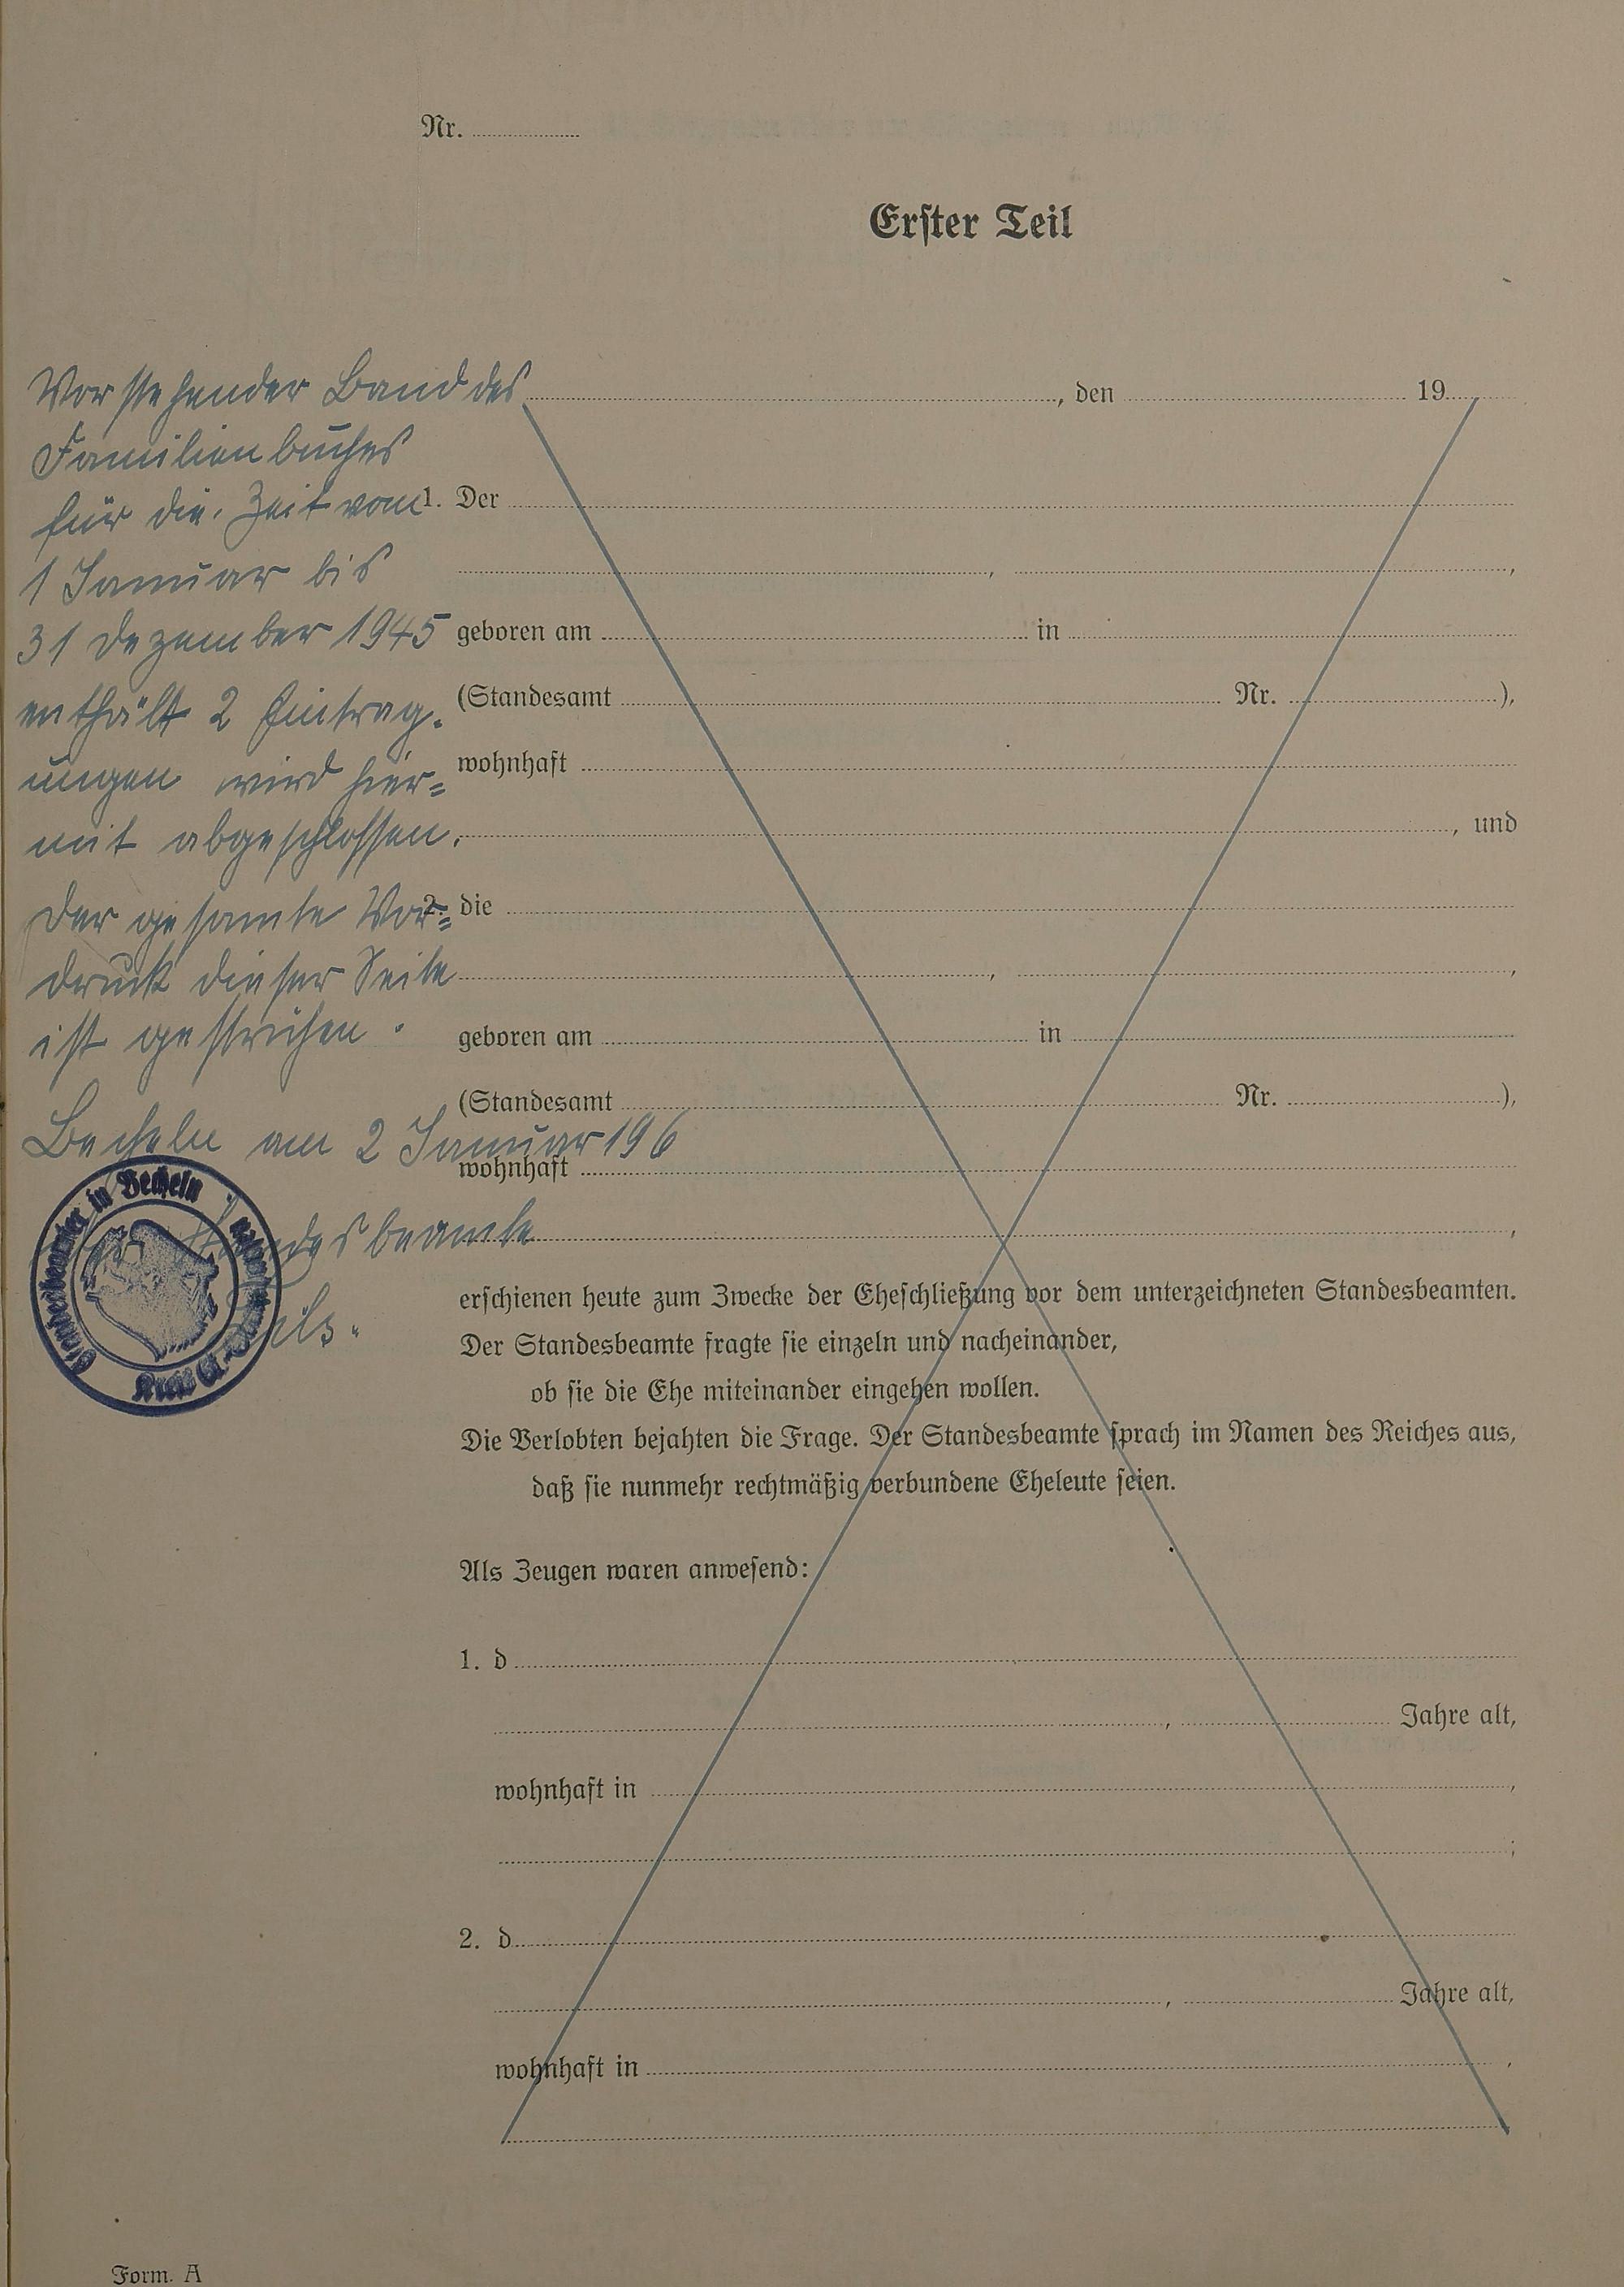 Nr.
Erster Teil
Vorstehender Band des
Familienbuches
für die. Zeit vom
1 Januar bis
31 Dezember 1945
enthält 2 Eintrag-
ungen wird hier=
mit abgeschlossen.
Der gesamte Vor=
druck dieser Seite
ist gestrichen.
Becheln am 2 Januar 196
Standesbeamte
Standesbeamter in Becheln
Kreis
, den 19
1. Der
, ,
geboren am in
(Standesamt Nr. ),
wohnhaft
, und
2. die
, ,
geboren am in
(Standesamt Nr. ),
wohnhaft
,
erschienen heute zum Zwecke der Eheschließung vor dem unterzeichneten Standesbeamten.
Der Standesbeamte fragte sie einzeln und nacheinander,
ob sie die Ehe miteinander eingehen wollen.
Die Verlobten bejahten die Frage. Der Standesbeamte sprach im Namen des Reiches aus,
daß sie nunmehr rechtmäßig verbundene Eheleute seien.
Als Zeugen waren anwesend:
1. d
, Jahre alt,
wohnhaft in ,
;
2. d
, Jahre alt,
wohnhaft in ,
Form. A